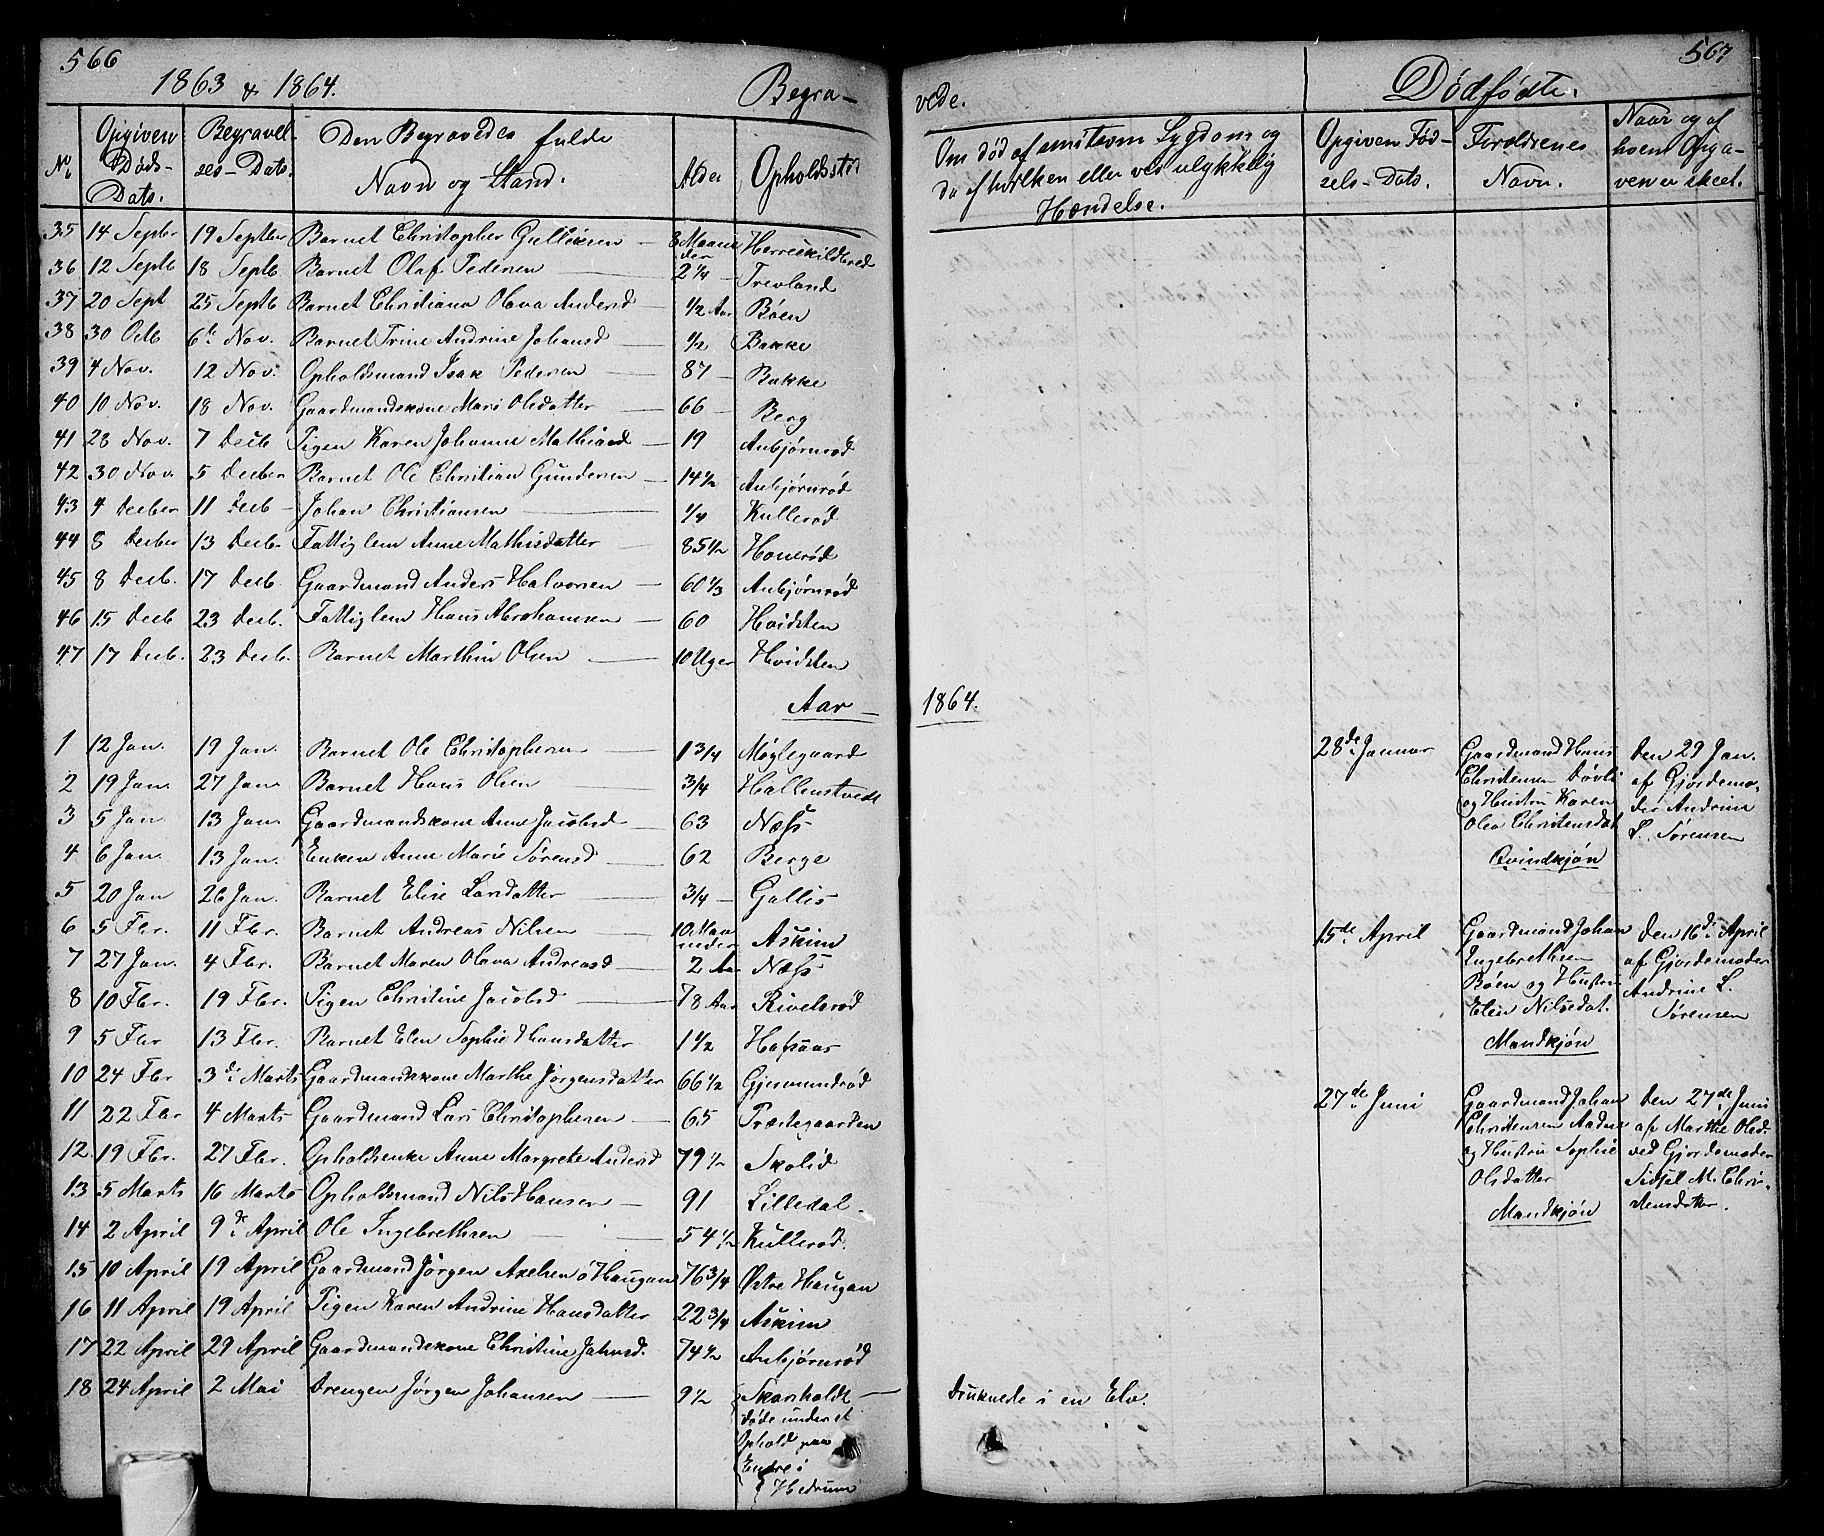 566
1863 & 1864.
Begra-
No
Opgiven Døds-Dato.
Begravelses-Dato.
Den Begravedes fulde Navn og Stand.
Alder
Opholdssted
35 14 Septbr 19 Septbr Barnet Christopher Gulliksen 8 Maaneder Herreskildbred
36 12 Septb 18 Septb Barnet Olaf Pedersen 2 1/4 Trevland
37 20 Sept 25 Septb Barnet Christiana Olava Andersd 1/2 Aar Bøen
38 30 Octb 6te Nov. Barnet Trine Andrine Johansd 1/2 Bakke
39 4 Nov. 12 Nov. Opholdsmand Isak Pedersen 87 Bakke
40 10 Nov. 18 Nov. Gaardmandskone Mari Olsdatter 66 Berg
41 28 Nov. 7 Decb Pigen Karen Johanne Mathiasd 19 Anbjørnrød
42 30 Nov. 5 Decber Barnet Ole Christian Gundersen 14 1/2 Anbjørnrød
43 4 Decber 11 Decb Johan Christiansen 1/4 Kullerød
44 8 Decber 13 Decb Fattiglem Anne Mathisdatter 85 1/2 Honerød
45 8 Decb. 17 Decb. Gaardmand Anders Halvorsen 60 1/3 Anbjørnrød
46 15 Decb 23 Decb. Fattiglem Hans Abrahamsen 60 Hvidsten
47 17 Decb. 23 Decb. Barnet Marthin Olsen 10 Uger Hvidsten
Aar -
1 12 Jan. 19 Jan. Barnet Ole Christophersen 1 3/4 Møglegaard
2 19 Jan. 27 Jan. Barnet Hans Olsen 3/4 Hallenstvedt
3 5 Jan 13 Jan. Gaardmandskone Anne Jacobsd 63 Næss
4 6 Jan. 13 Jan. Enken Anne Marie Sørensd 62 Berge
5 20 Jan 26 Jan. Barnet Elise Larsdatter 3/4 Gallis
6 5 Fbr. 11 Fbr. Barnet Andreas Nilsen 10 Maaneder Askim
7 27 Jan. 4 Fbr. Barnet Maren Olava Andreasd 2 Aar Næss
8 10 Fbr. 19 Fbr. Pigen Christine Jacobsd 78 Aar Rivelsrød
9 5 Fbr 13 Fbr. Barnet Elen Sophie Hansdatter 1 1/2 Hafsaas
10 24 Fbr 3di Marts Gaardmandskone Marthe Jørgensdatter 66 1/2 Gjermundrød
11 22 Fbr 4 Marts Gaardmand Lars Christophersen 65 Prestegaarden
12. 19 Fbr. 27 Fbr. Opholdsenke Anne Margrete Andersd 79 1/2 Skolid
13 5 Marts 16 Marts Opholdsmand Nils Hansen 91 Lilledal.
14 2 April 9de April Ole Ingebrethsen 54 1/2 Kullerød.
15 10 April 19 April Gaardmand Jørgen Axelsen ø Haugan 76 3/4 Østre Haugan
16 11 April 19 April Pigen Karen Andrine Hansdatter 22 3/4 Askim
17 22 April 29 April Gaardmandskone Christine Jahnsd. 74 1/2 Anbjørnrød
18 24 April 2 Mai Drengen Jørgen Johansen 9 1/2 Skarsholdt
døde under et
Ophold paa
i
Hedrum
567
vede.
Dødfødte.
Om død af smitsom Sygdom og
da af hvilken eller ved ulykkelig
Hændelse.
Opgiven Fødsels-Dato.
Forældrenes Navn.
Naar og af
hvem Opgaven er skeet.
1864.
28de Januar
Gaardmand Hans
Christensen Døvli
og Hustru Karen
Olea Christensdat
Qvindkjøn
Den 29 Jan.
af Gjordemoder Andrine
L. Sørensen
15de April
Gaardmand Johan
Ingebrethsen
Bøen og Hustru
Elen Nilsedat.
Mandkjøn
Den 16de April
af Gjordemoder
Andrine L.
Sørensen
27de Juni
Gaardmand Johan
Christensen Aadne
og Hustru Sophie
Olsdatter
Mandkjøn
Den 27de Juni
af Marthe Olsd.
ved Gjordemoder
Sidsel M. Christensdatter.
Druknede i en Elv.